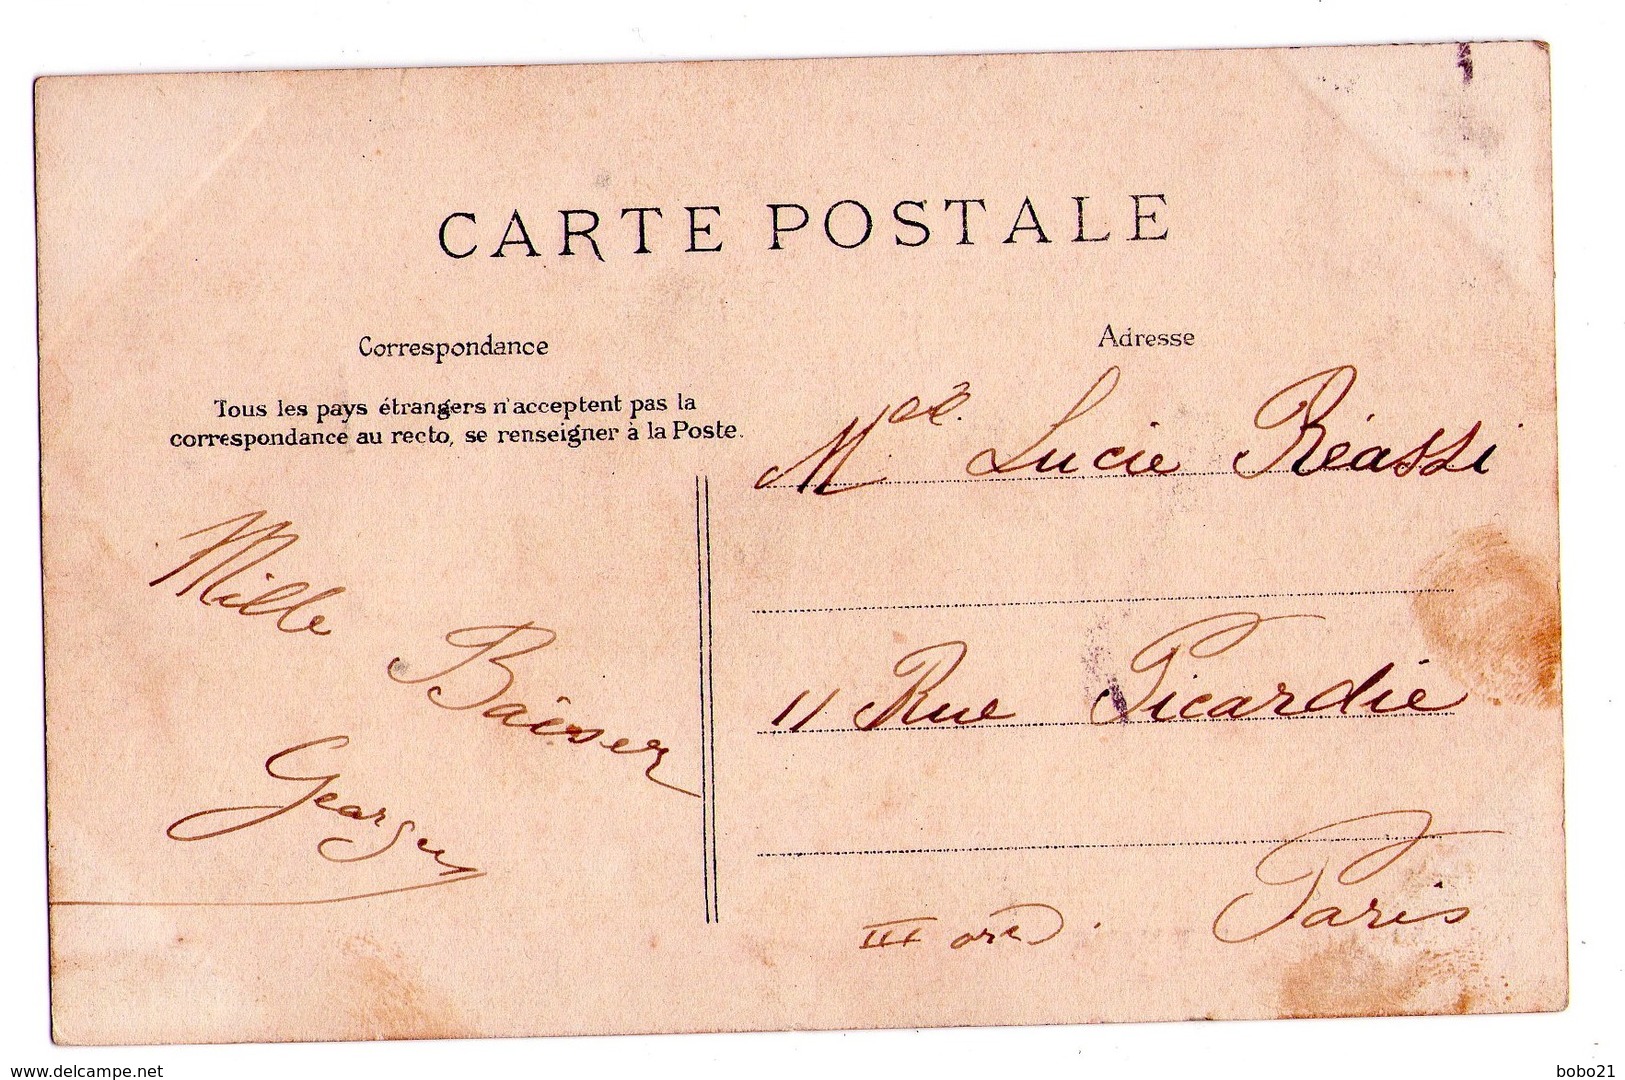 CARTE POSTALE
Correspondance
Tous les pays étrangers n'acceptent pas la
correspondance au recto, se renseigner à la Poste.
Mille
Baiser
Georges
Adresse
Melle Lucie Réassi
11 Rue Picardie
Paris
III
www.delcampe.net
bobo21